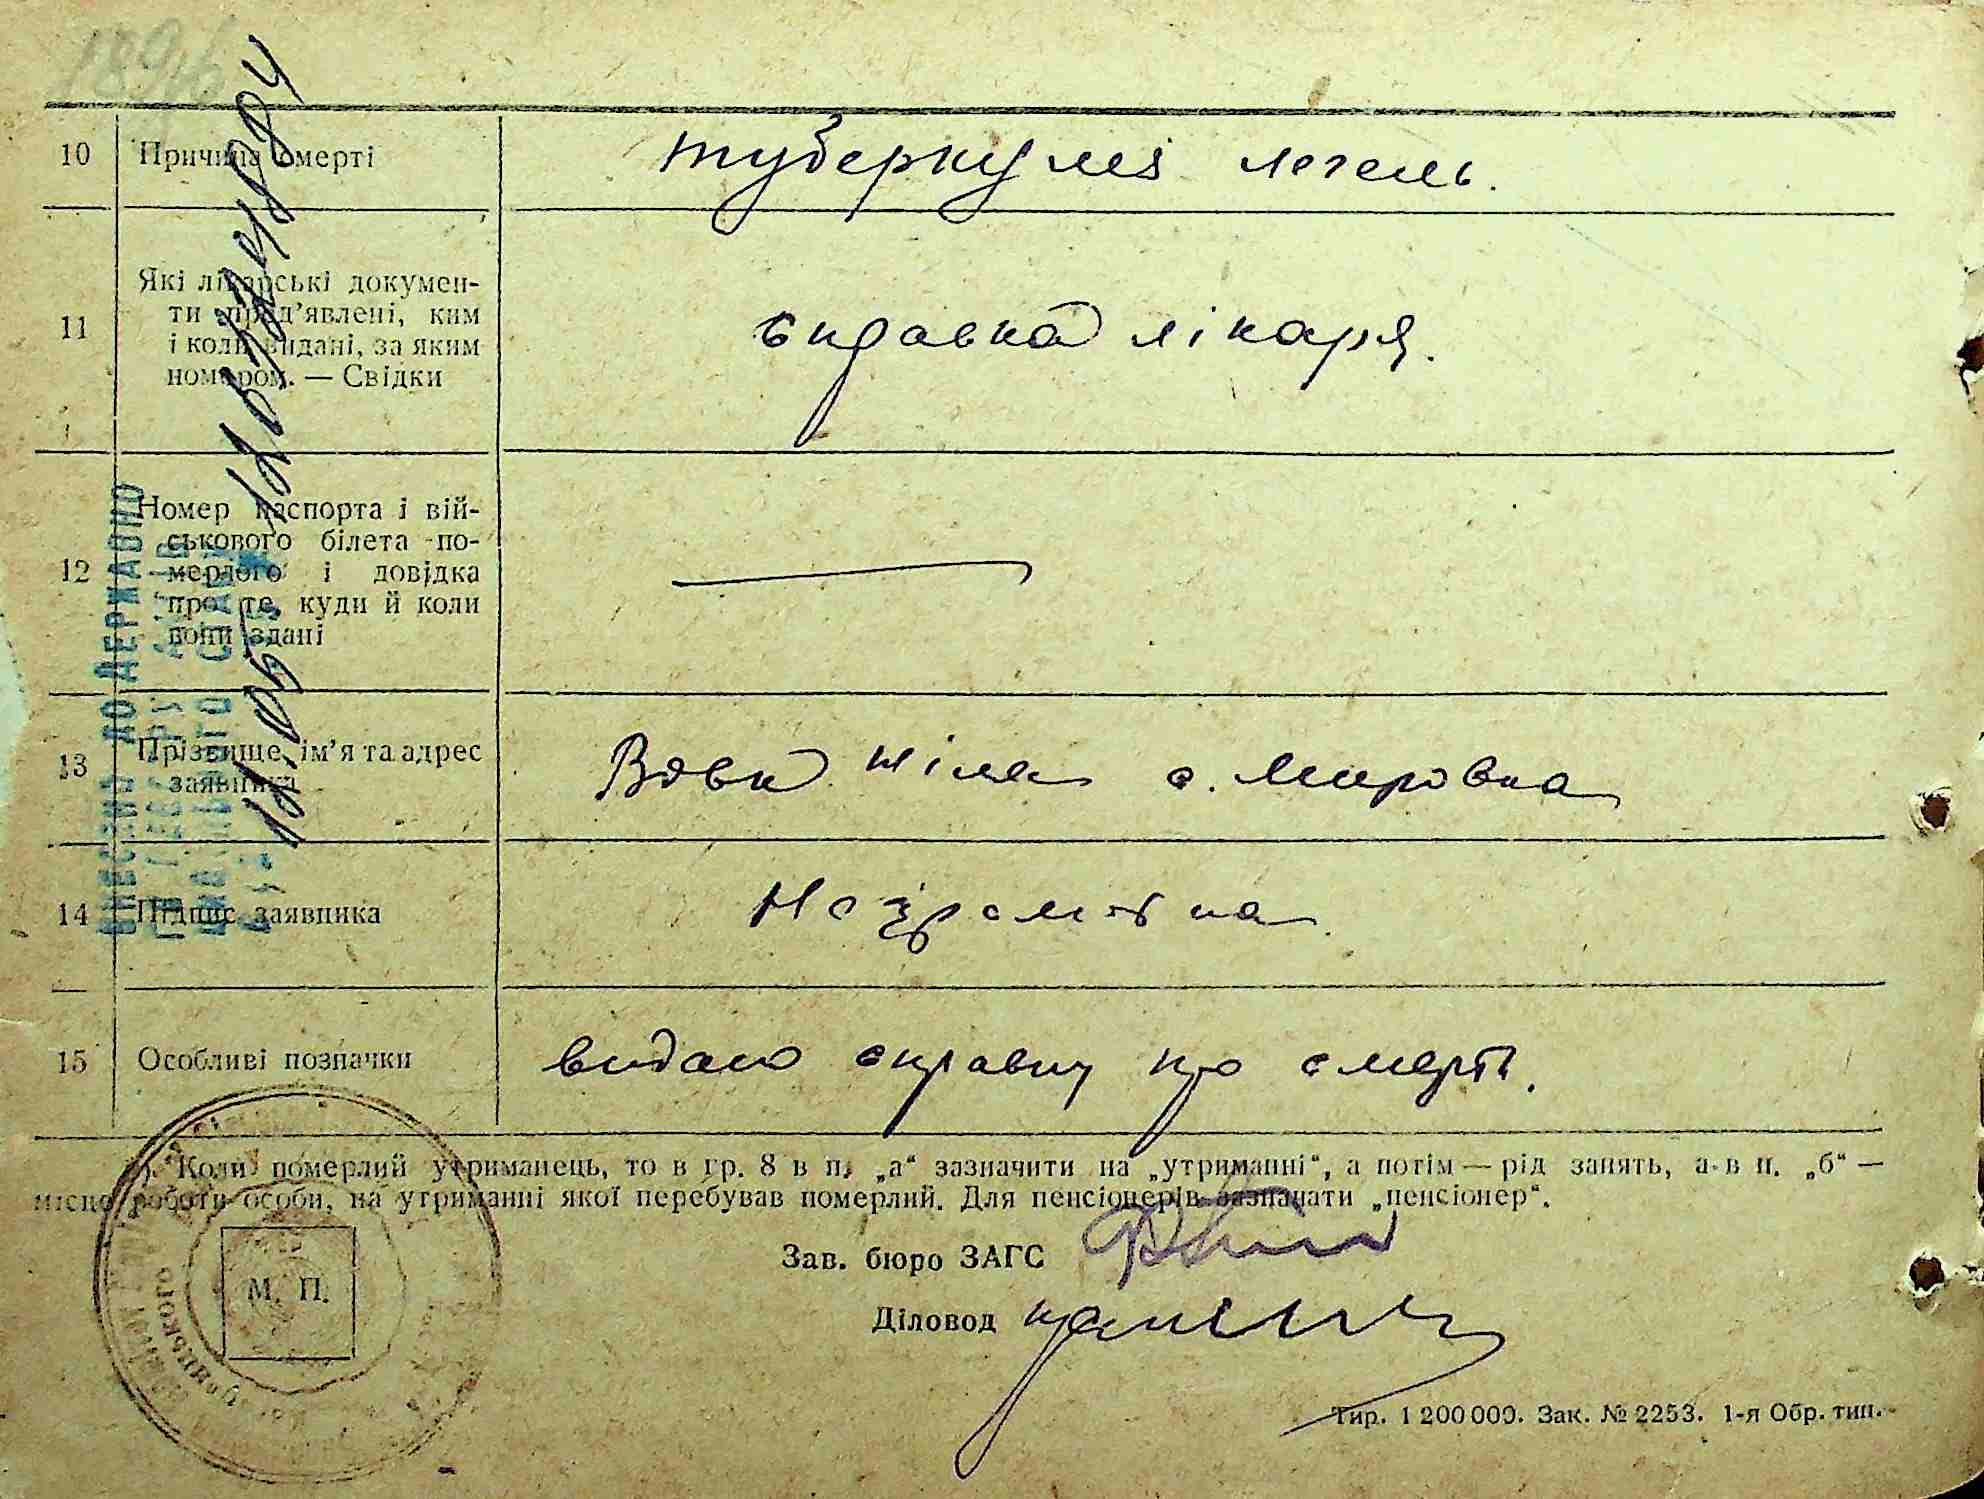 10 Причина смерті туберкульоз легень.
11 Які лікарські докумен-
ти пред'явлені, ким
і коли видані, за яким
номером. — Свідки
справка лікаря.
12 Номер паспорта і вій-
ськового білета по-
мерлого і довідка
про те, куди й коли
вони здані
13 Прізвище, ім'я та адрес
заявника
Вовк с. Мировка
14 Підпис заявника
Неграмотна
15 Особливі позначки видано справку про смерть.
*) Коли померлий утриманець, то в гр. 8 в п. „а“ зазначити на „утриманні“, а потім — рід занять, а в п. „б“ —
місце роботи особи, на утриманні якої перебував померлий. Для пенсіонерів зазначати „пенсіонер“.
Зав. бюро ЗАГС
М. П.
Діловод
Тир. 1 200 000. Зак. № 2253. 1-я Обр. тип.
ВНЕСЕНО ДО ДЕРЖАВНО